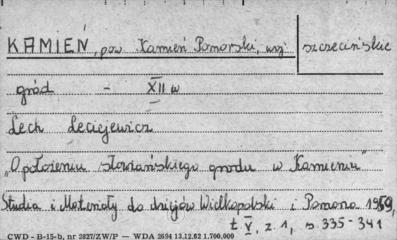 KAMIEŃ, pow. Kamień Pomorski, woj. szczecińskie
gród - XII w
Lech Leciejewicz
"O położeniu słowiańskiego grodu w Kamieniu"
Studia i Materiały do dziejów Wielkopolski i Pomorza 1959,
t. V, z. 1, s. 335-341
CWD - B-15-b, nr 2827/ZW/P — WDA 2694 13.12.62 1.700.000